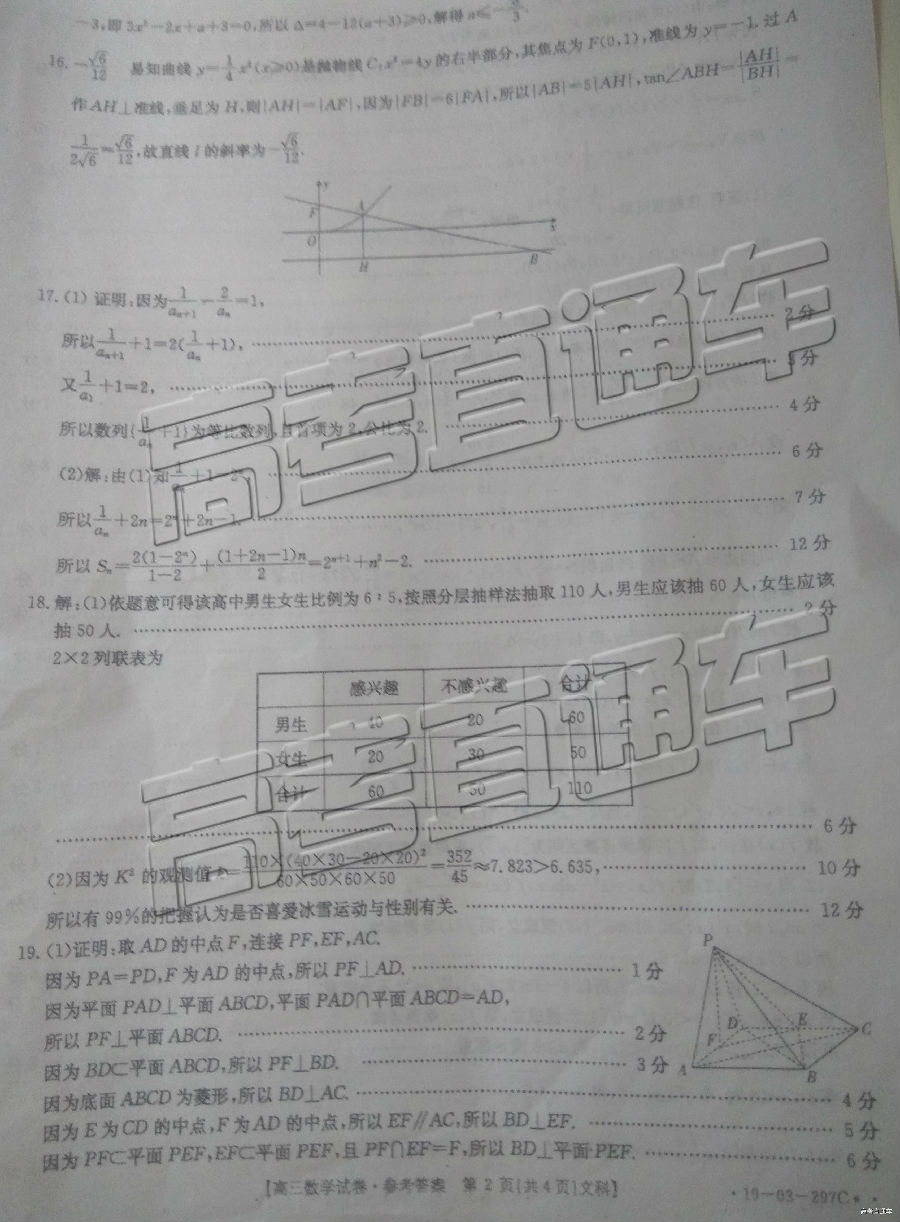 -3,即3x²-2x+a+3=0,所以Δ=4-12(a+3)≥0,解得a≤-8/3.
16.-√6/12 易知曲线y=1/4x²(x≥0)是抛物线C:x²=4y的右半部分,其焦点为F(0,1),准线为y=-1.过A
作AH⊥准线,垂足为H,则|AH|=|AF|,因为|FB|=6|FA|,所以|AB|=5|AH|,tan∠ABH=|AH|/|BH|=
1/2√6=√6/12,故直线l的斜率为-√6/12.
y
F
A
O
x
H
B
17.(1)证明:因为1/aₙ₊₁-2/aₙ=1,
所以1/aₙ₊₁+1=2(1/aₙ+1), 2分
又1/a₁+1=2, 3分
所以数列{1/aₙ+1}为等比数列,且首项为2,公比为2. 4分
(2)解:由(1)知1/aₙ+1=2ⁿ, 6分
所以1/aₙ+2n=2ⁿ+2n-1. 7分
所以Sₙ=2(1-2ⁿ)/1-2+(1+2n-1)n/2=2ⁿ⁺¹+n²-2. 12分
18.解:(1)依题意可得该高中男生女生比例为6:5,按照分层抽样法抽取110人,男生应该抽60人,女生应该
抽50人. 2分
2×2列联表为
感兴趣 不感兴趣 合计
男生 40 20 60
女生 20 30 50
合计 60 50 110
6分
(2)因为K²的观测值k=110×(40×30-20×20)²/60×50×60×50=352/45≈7.823>6.635, 10分
所以有99%的把握认为是否喜爱冰雪运动与性别有关. 12分
19.(1)证明:取AD的中点F,连接PF,EF,AC.
因为PA=PD,F为AD的中点,所以PF⊥AD. 1分
因为平面PAD⊥平面ABCD,平面PAD∩平面ABCD=AD,
所以PF⊥平面ABCD. 2分
因为BD⊂平面ABCD,所以PF⊥BD. 3分
因为底面ABCD为菱形,所以BD⊥AC. 4分
因为E为CD的中点,F为AD的中点,所以EF∥AC,所以BD⊥EF. 5分
因为PF⊂平面PEF,EF⊂平面PEF,且PF∩EF=F,所以BD⊥平面PEF. 6分
P
D
E
C
F
A
B
【高三数学试卷·参考答案 第2页(共4页)文科】
·19-03-297C·
高考直通车
高考直通车